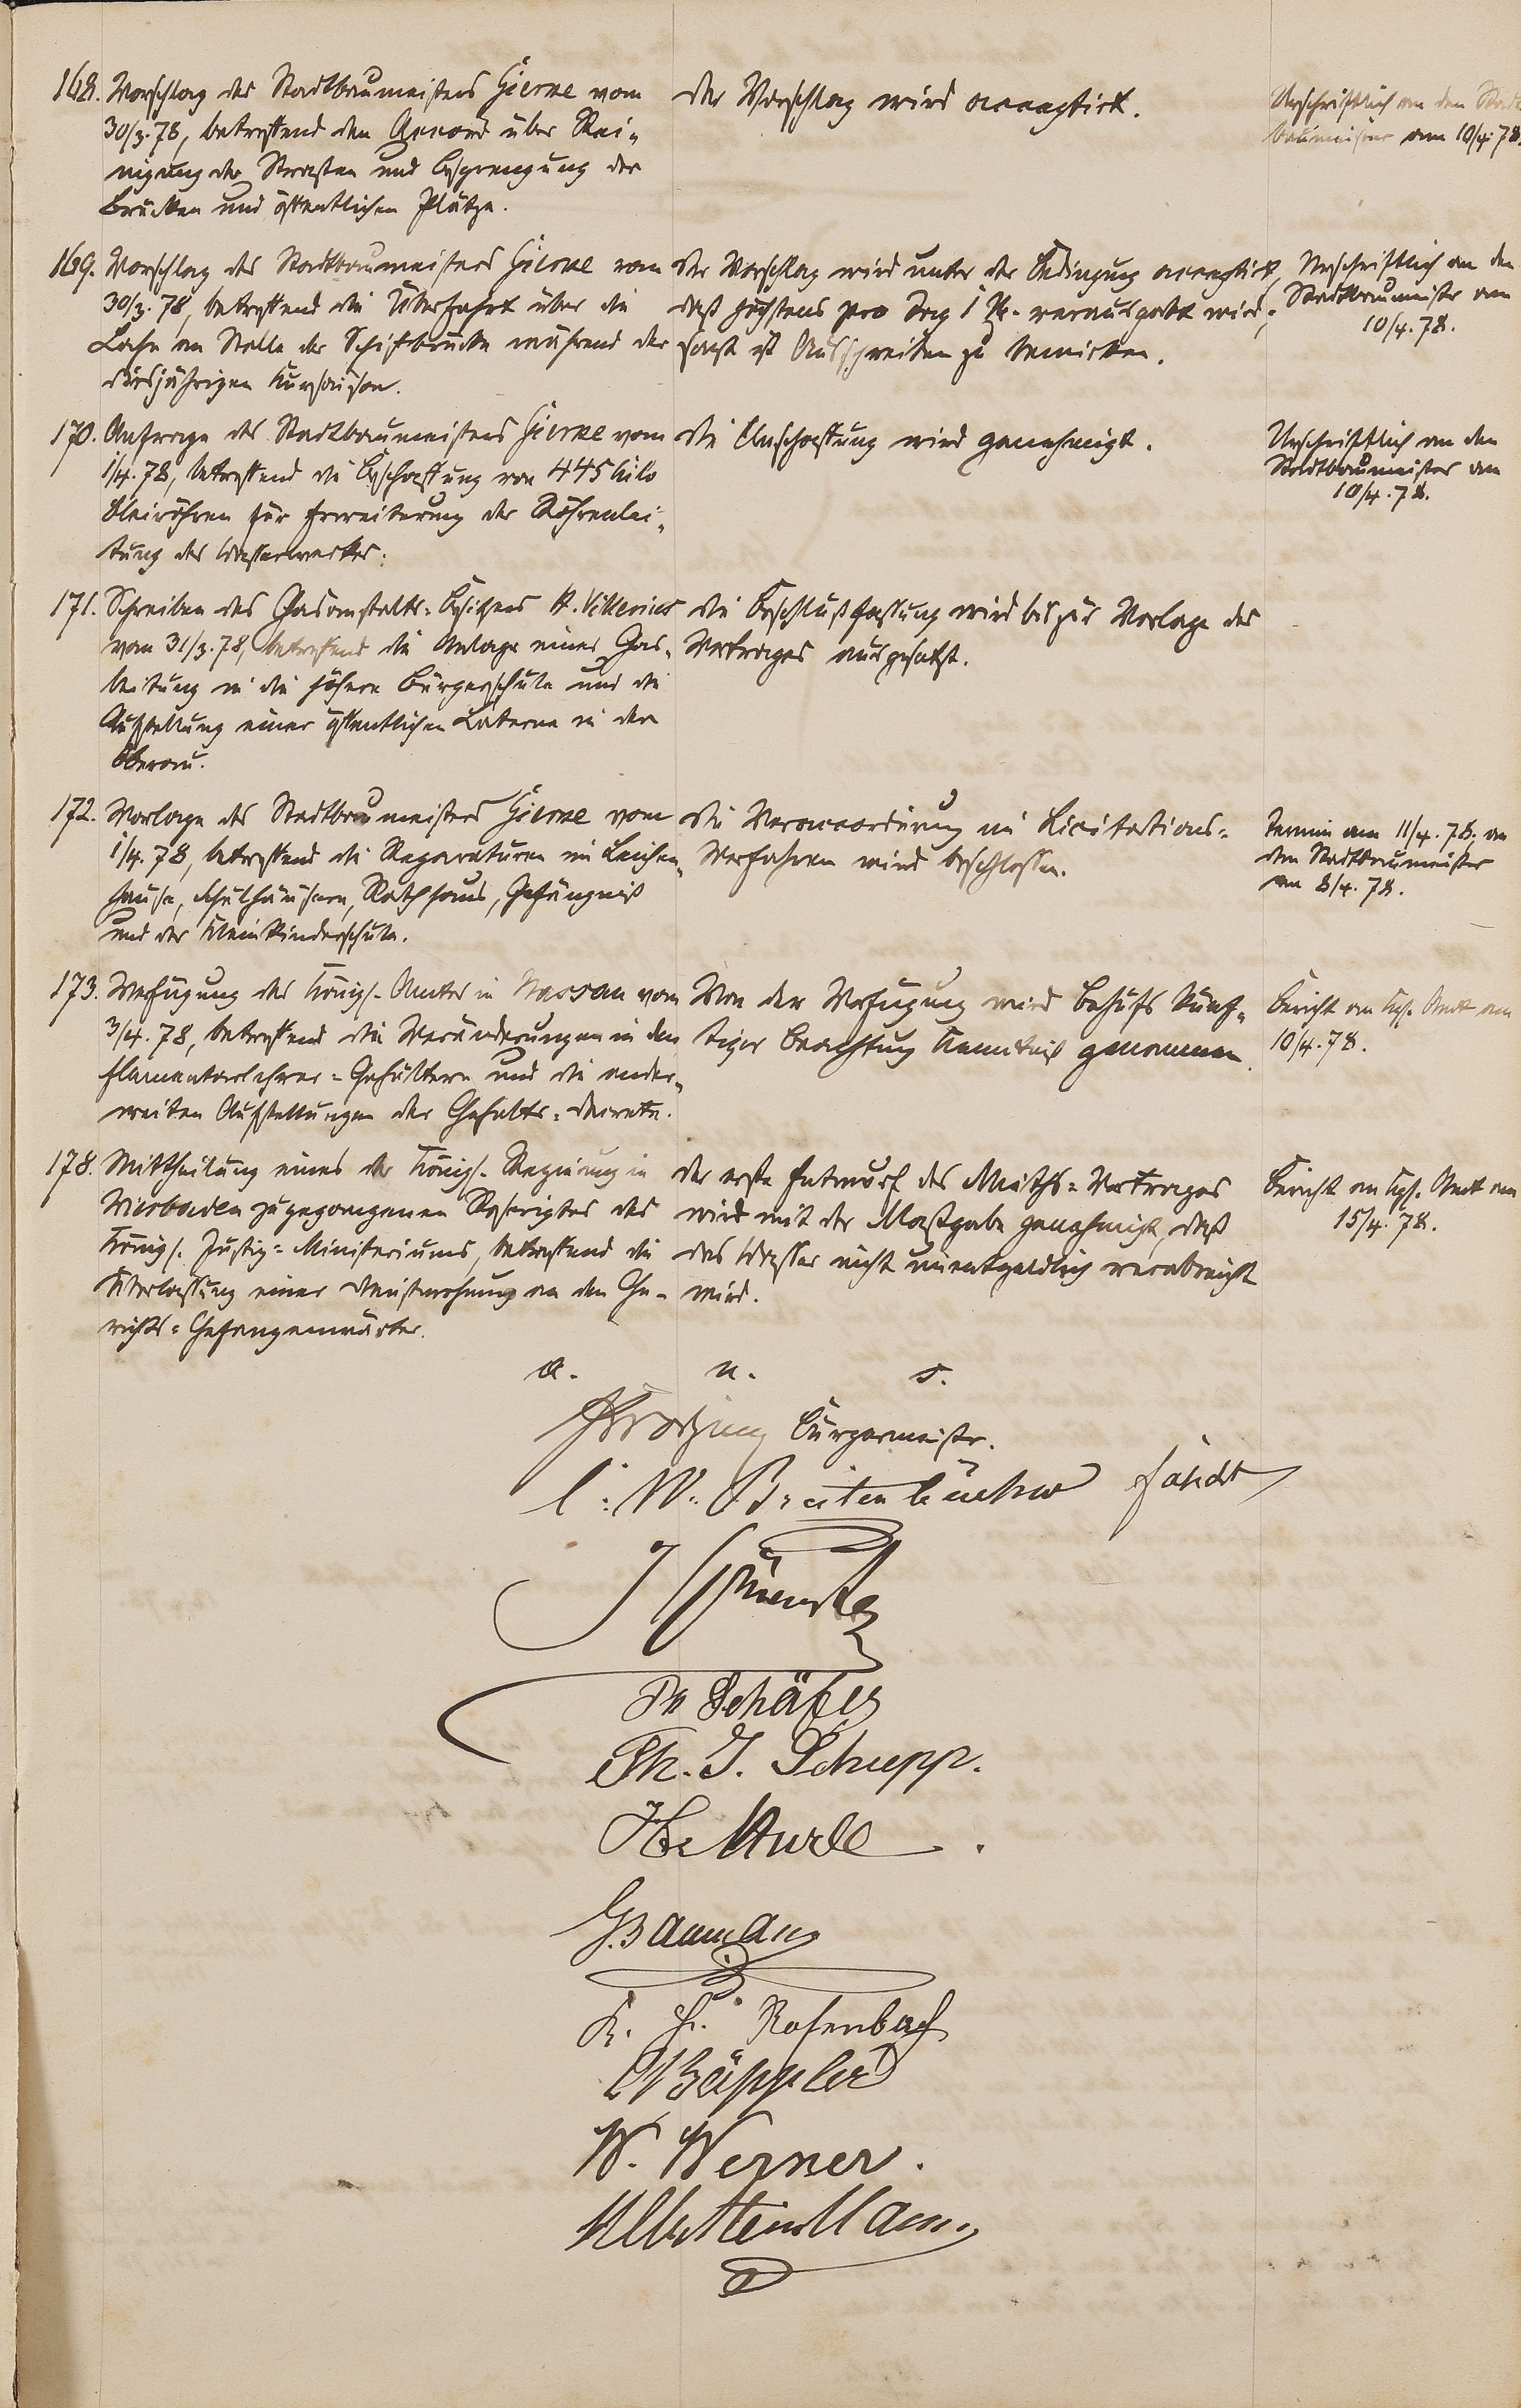 168. Vorschlag des Stadtbaumeisters Gierke vom
30/3. 78, betreffend den Accord über Rei-
nigung der Strassen und Besprengung der
Brücken und öffentlichen Plätze.
Der Vorschlag wird acceptirt.
Urschriftlich an den Stadt
baumeister am 10/4. 78.
169. Vorschlag des Stadtbaumeisters Gierke vom
30/3. 78, betreffend die Überfahrt über die
Lahn an Stelle der Schiffbrücke während der
diesjährigen Kursaison.
Der Vorschlag wird unter der Bedingung acceptirt,
daß höchstens pro Tag 1 M. verausgabt wird;
sonst ist Ausschreiben zu bewirken.
Urschriftlich an den
Stadtbaumeister am
10/4. 78.
170. Anfrage des Stadtbaumeisters Gierke vom
1/4. 78, betreffend die Beschaffung von 445 Kilo
Bleiröhren für Erweiterung der Röhrenlei-
tung des Wasserwerkes.
Die Anschaffung wird genehmigt.
Urschriftlich an den
Stadtbaumeister am
10/4. 78.
171. Schreiben des Gasanstalts-Besitzers A. Vitterius
vom 31/3. 78, betreffend die Anlage einer Gas-
leitung in die höhere Bürgerschule und die
Aufstellung einer öffentlichen Laterne in der
Oberau.
Die Beschlußfassung wird bis zur Vorlage des
Vertrages ausgesetzt.
172. Vorlage des Stadtbaumeisters Gierke vom
1/4. 78, betreffend die Reparaturen im Leichen-
hause, Schulhäusern, Rathhaus, Gefängniß
und der Kleinkinderschule.
Die Veraccordirung im Licitations-
Verfahren wird beschlossen.
Termin am 11/4. 78, an
den Stadtbaumeister
am 8/4. 78.
173. Verfügung des Königl. Amtes in Nassau vom
3/4. 78, betreffend die Veränderungen in den
Elementarlehrer-Gehältern und die ander-
weiten Aufstellungen der Gehalts-Decrete.
Von der Verfügung wird behufs künf-
tiger Beachtung Kenntniß genommen.
Bericht an Kgl. Amt am
10/4. 78.
178. Mittheilung eines der Königl. Regierung in
Wiesbaden zugegangenen Rescriptes des
Königl. Justiz-Ministeriums, betreffend die
Überlassung einer Dienstwohnung an den Ge-
richts-Gefangenwärter.
Der erste Entwurf des Mieths-Vertrages
wird mit der Maßgabe genehmigt, daß
das Wasser nicht unentgeldlich verabreicht
wird.
Bericht an Kgl. Amt am
15/4. 78.
a. u. s.
Bürgermeister.
C. W. Breitenbücher
J
Schäfer
Ph. J. Schupp.
G. Baumann
Rosenbach
W. Werner.